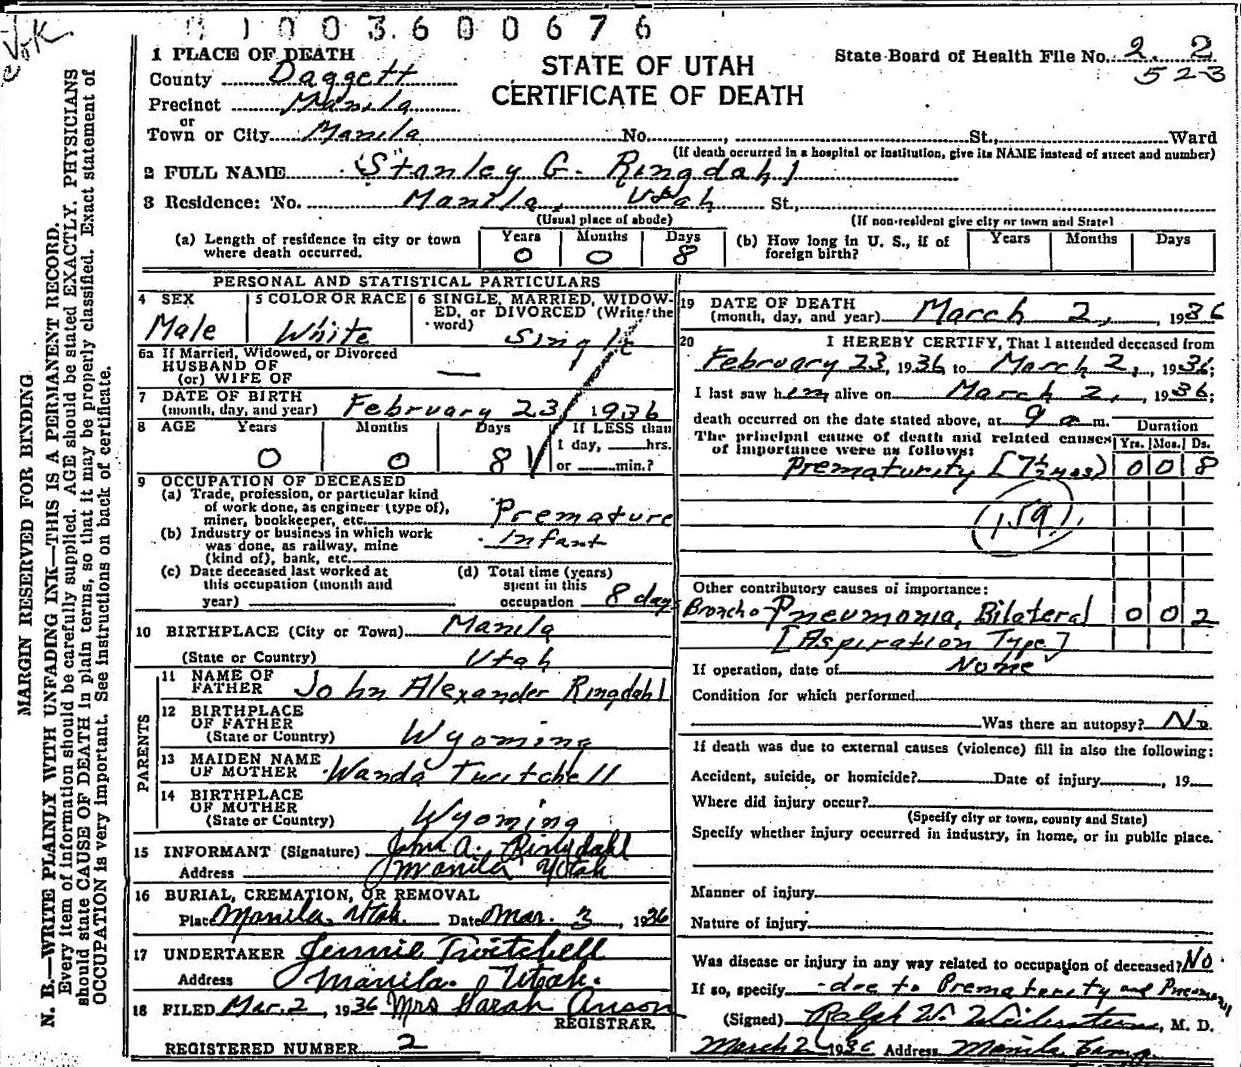 1003600676
1 PLACE OF DEATH
STATE OF UTAH
CERTIFICATE OF DEATH
State Board of Health File No. 2 2
523
County Daggett
Precinct Manila
or
Town or City Manila No. , St., Ward
(If death occurred in a hospital or institution, give its NAME instead of street and number)
2 FULL NAME Stanley G. Ringdahl
3 Residence: No. Manila, Utah St.,
(Usual place of abode) (If non-resident give city or town and State)
(a) Length of residence in city or town where death occurred. Years 0 Months 0 Days 8
(b) How long in U. S., if of foreign birth? Years Months Days
PERSONAL AND STATISTICAL PARTICULARS
4 SEX Male
5 COLOR OR RACE White
6 SINGLE, MARRIED, WIDOWED, or DIVORCED (Write the word) Single
6a If Married, Widowed, or Divorced
HUSBAND OF
(or) WIFE OF —
7 DATE OF BIRTH
(month, day, and year) February 23, 1936
8 AGE Years 0 Months 0 Days 8 If LESS than
1 day, hrs.
or min.?
9 OCCUPATION OF DECEASED
(a) Trade, profession, or particular kind
of work done, as engineer (type of),
miner, bookkeeper, etc. Premature
(b) Industry or business in which work Infant
was done, as railway, mine
(kind of), bank, etc.
(c) Date deceased last worked at
this occupation (month and
year)
(d) Total time (years)
spent in this
occupation 8 days
10 BIRTHPLACE (City or Town) Manila
(State or Country) Utah
PARENTS
11 NAME OF
FATHER John Alexander Ringdahl
12 BIRTHPLACE
OF FATHER
(State or Country) Wyoming
13 MAIDEN NAME
OF MOTHER Wanda Twitchell
14 BIRTHPLACE
OF MOTHER
(State or Country) Wyoming
15 INFORMANT (Signature) John A. Ringdahl
Address Manila Utah
16 BURIAL, CREMATION, OR REMOVAL
Place Manila, Utah. Date Mar. 3, 1936
17 UNDERTAKER Jennie Twitchell
Address Manila. Utah.
18 FILED Mar. 2, 1936 Mrs Sarah Anson
REGISTRAR.
REGISTERED NUMBER 2
19 DATE OF DEATH
(month, day, and year) March 2, 1936
20 I HEREBY CERTIFY, That I attended deceased from
February 23, 1936 to March 2, 1936;
I last saw him alive on March 2, 1936;
death occurred on the date stated above, at 9 a m.
The principal cause of death and related causes
of importance were as follows:
Duration
Yrs. Mos. Ds.
Prematurity [7½ mos) 0 0 8
159
Other contributory causes of importance:
Broncho-Pneumonia, Bilateral 0 0 2
[Aspiration Type]
If operation, date of None
Condition for which performed
Was there an autopsy? No
If death was due to external causes (violence) fill in also the following:
Accident, suicide, or homicide? Date of injury , 19
Where did injury occur?
(Specify city or town, county and State)
Specify whether injury occurred in industry, in home, or in public place.
Manner of injury
Nature of injury
Was disease or injury in any way related to occupation of deceased? No
If so, specify - due to Prematurity and Pneumonia
(Signed) Ralph W. , M. D.
March 2 1936 Address Manila Camp.
MARGIN RESERVED FOR BINDING
N. B.—WRITE PLAINLY WITH UNFADING INK—THIS IS A PERMANENT RECORD.
Every item of information should be carefully supplied. AGE should be stated EXACTLY. PHYSICIANS
should state CAUSE OF DEATH in plain terms, so that it may be properly classified. Exact statement of
OCCUPATION is very important. See instructions on back of certificate.